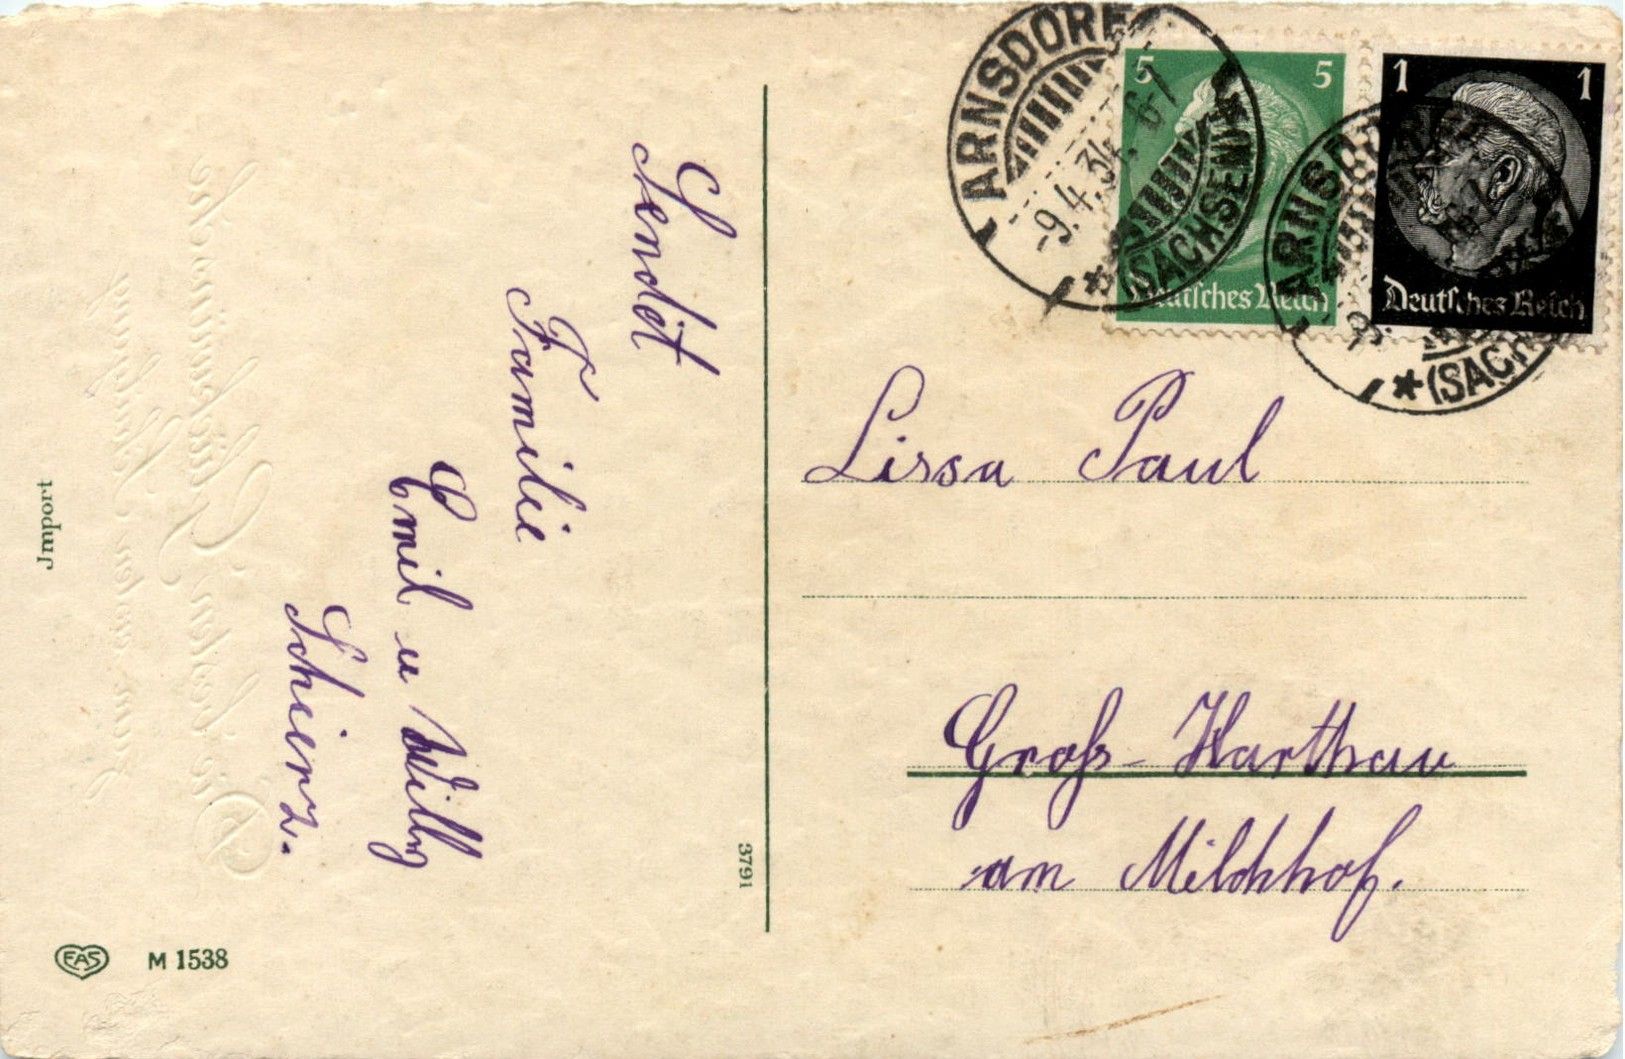 Sendet
Familie
Emil u Willy
Schierz.
Jmport
EAS M 1538
3791
ARNSDORF
-9.4.34. 6-7
* (SACHSEN)
5 5
Deutsches Reich
1 1
Deutsches Reich
ARNSD
* (SACHS
Lissa Paul
Groß-Harthau
am Milchhof.